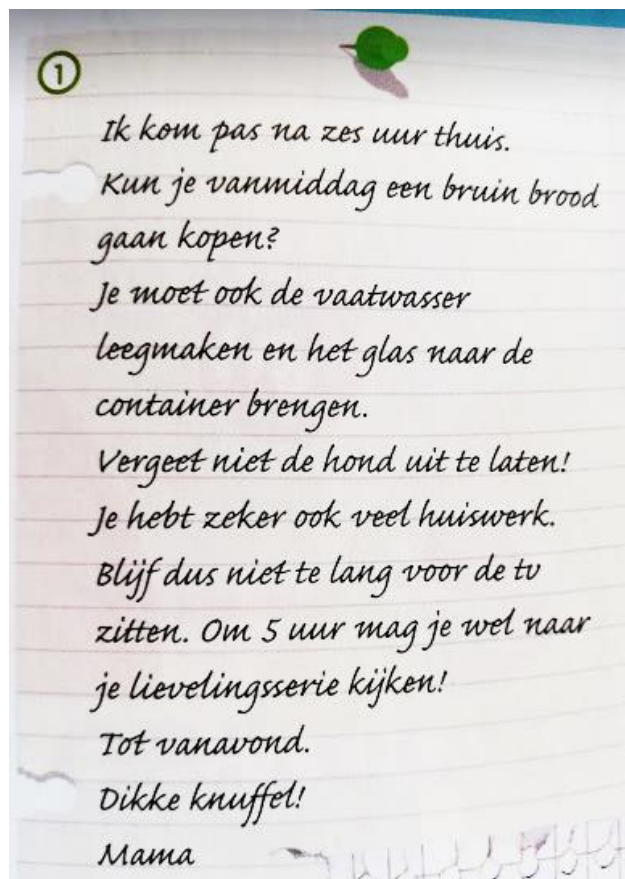 1
Ik kom pas na zes uur thuis.
Kun je vanmiddag een bruin brood
gaan kopen?
Je moet ook de vaatwasser
leegmaken en het glas naar de
container brengen.
Vergeet niet de hond uit te laten!
Je hebt zeker ook veel huiswerk.
Blijf dus niet te lang voor de tv
zitten. Om 5 uur mag je wel naar
je lievelingsserie kijken!
Tot vanavond.
Dikke knuffel!
Mama